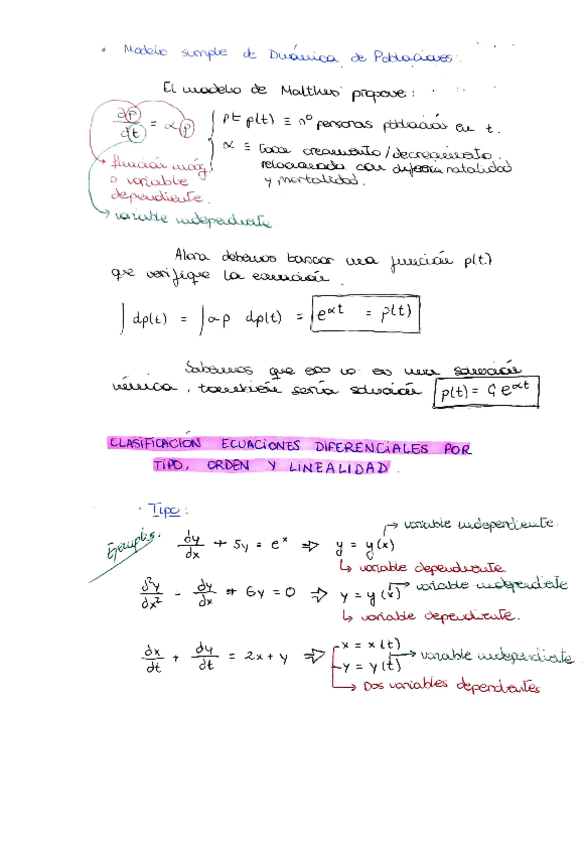 • Modelo simple de Dinámica de Poblaciones:
El modelo de Malthus propone:
dp/dt = α p { p = p(t) ≡ nº personas población en t.
α ≡ tasa crecimiento/decrecimiento.
relacionada con natalidad
y mortalidad.
función incóg.
o variable
dependiente.
variable independiente
Ahora debemos buscar una función p(t)
que verifique la ecuación.
∫ dp(t) = ∫ αp dp(t) = e^αt = p(t)
Sabemos que eso no es una solución
única, también sería solución p(t) = C e^αt
CLASIFICACIÓN ECUACIONES DIFERENCIALES POR
TIPO, ORDEN Y LINEALIDAD.
· Tipo:
Ejemplos.
dy/dx + 5y = e^x ⇒ y = y(x) → variable independiente.
↳ variable dependiente.
d²y/dx² - dy/dx + 6y = 0 ⇒ y = y(x) → variable independiente
↳ variable dependiente.
dx/dt + dy/dt = 2x + y ⇒ x = x(t)
y = y(t) → variable independiente.
→ Dos variables dependientes